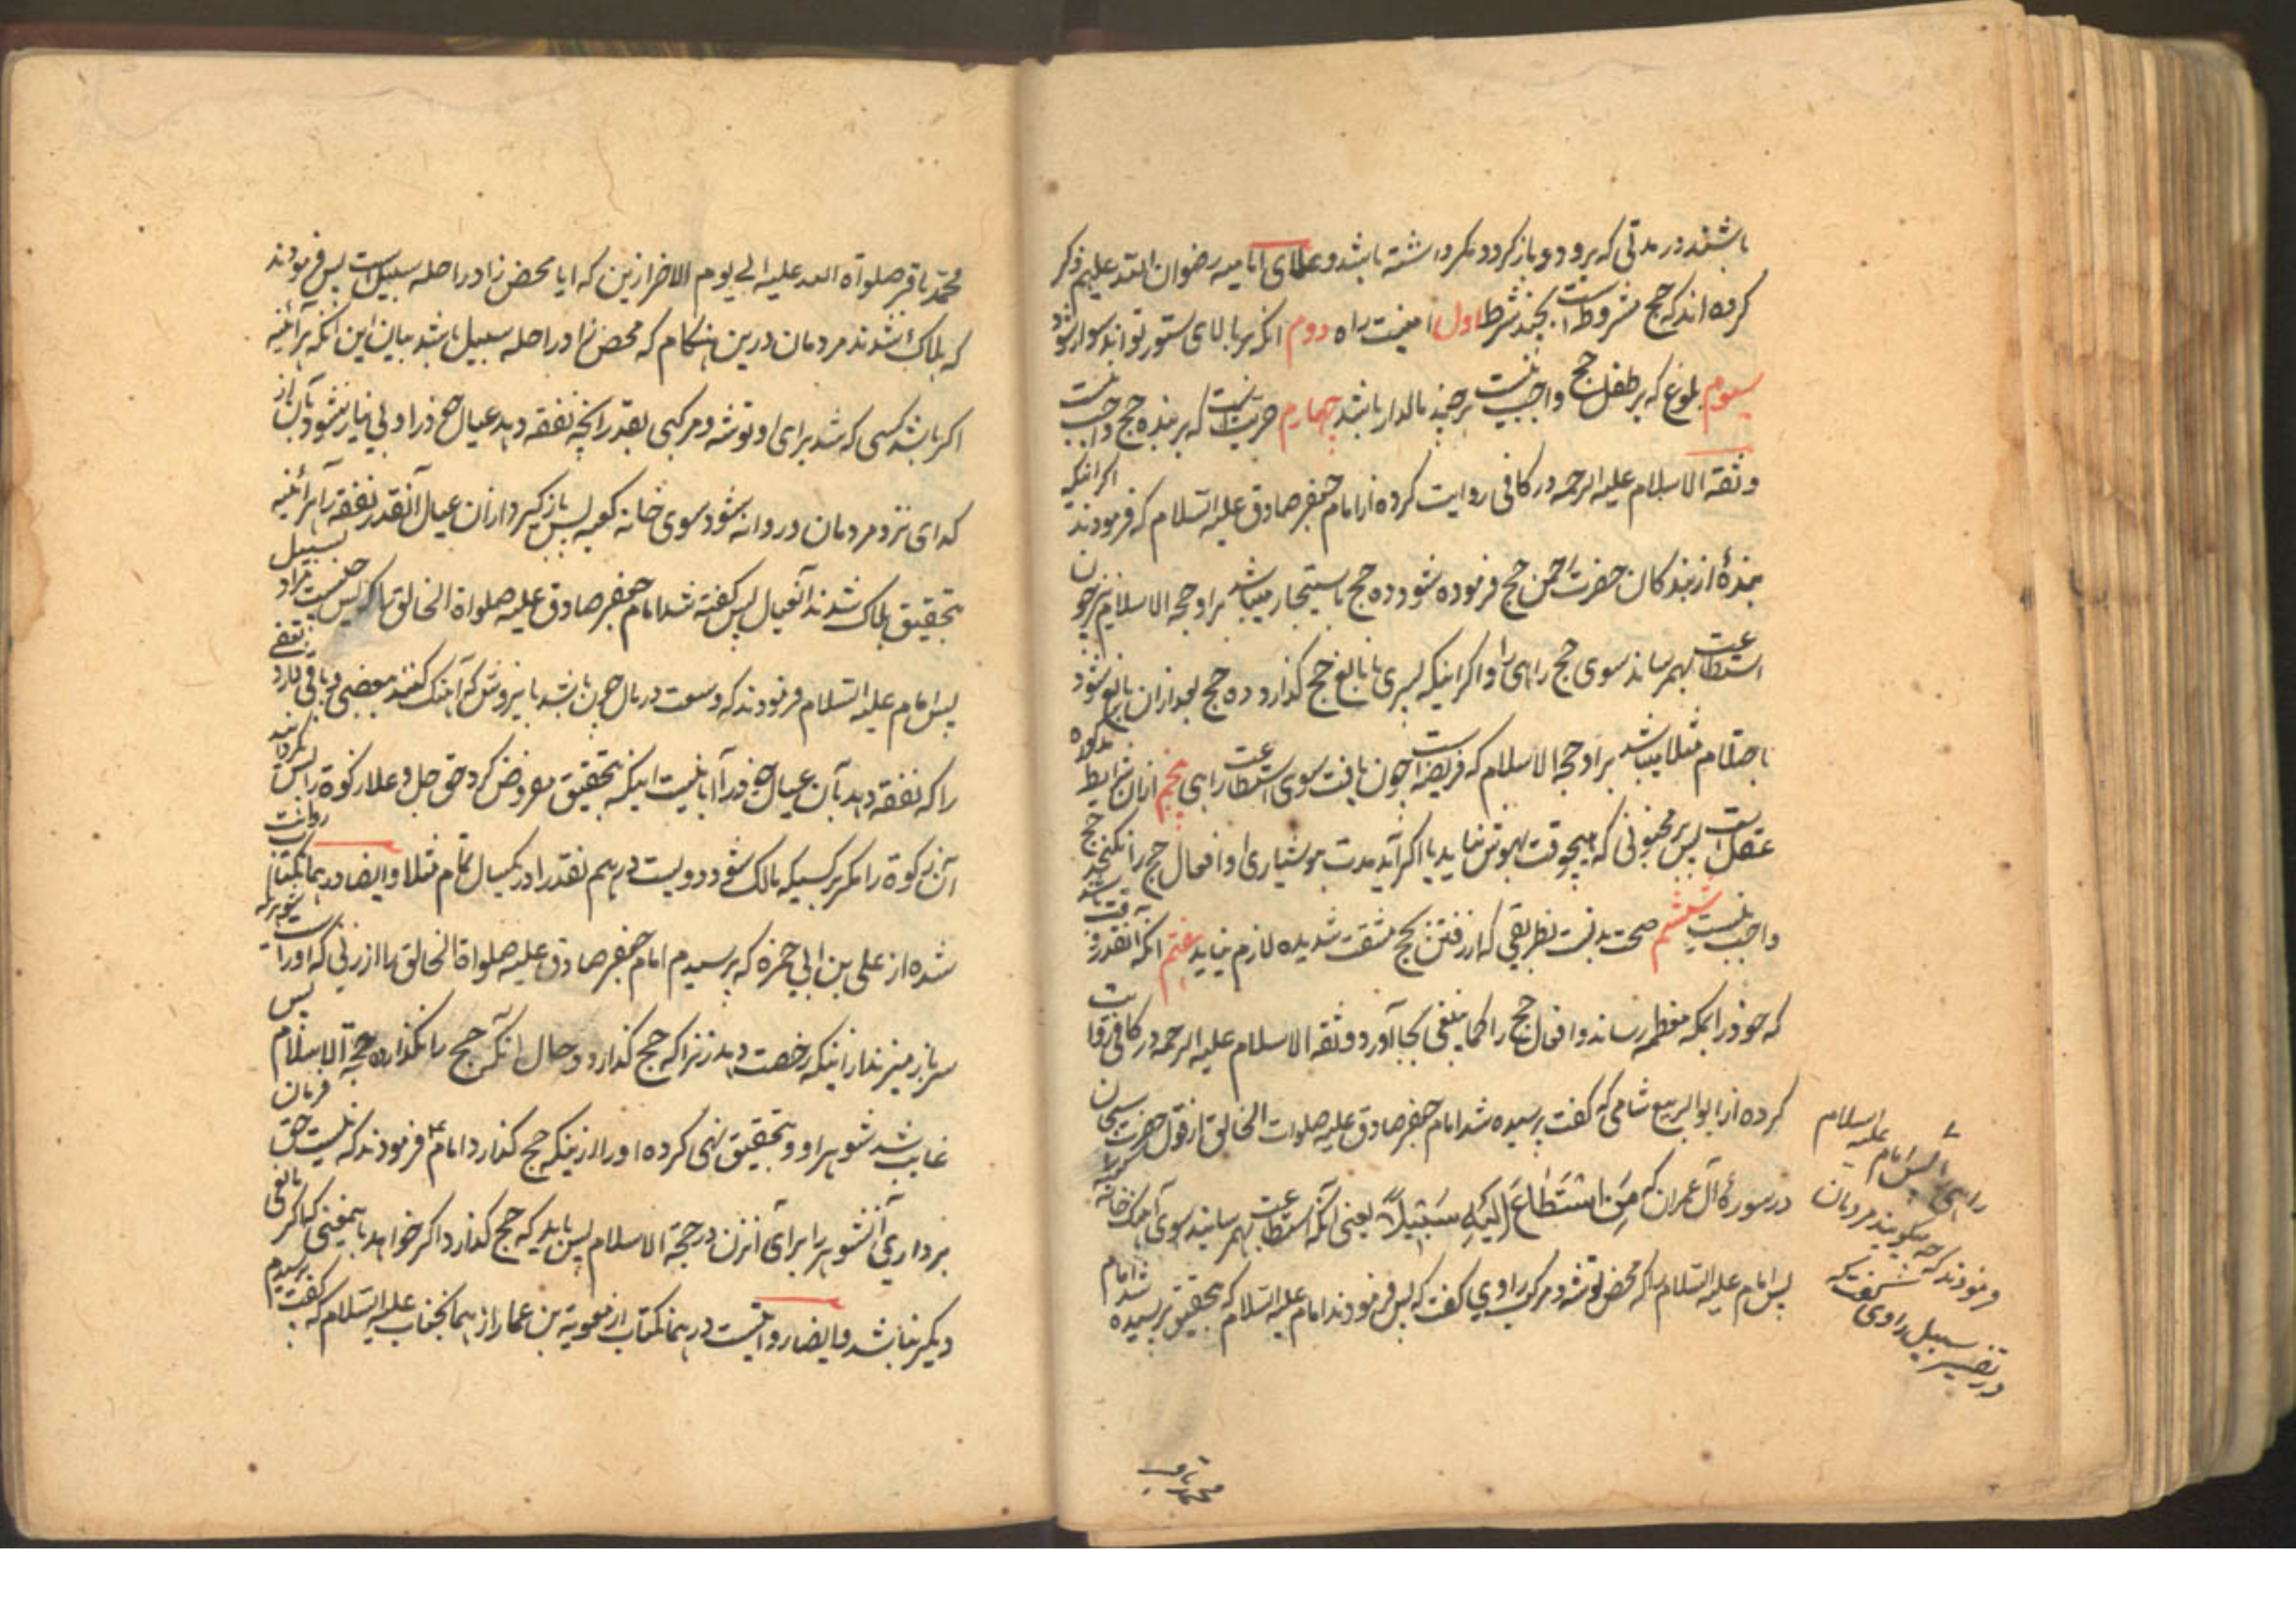 باشند در مدتی که برود و باز کردد و مکر داشته باشد و علمای امامیه رضوان الله علیهم ذکر
کرده اند که حج مشروط است بچند شرط اول امنیت راه دوم انکه بر بالای ستور تواند سوار شود
سیوم بلوغ که بر طفل حج واجب نیست هر چند مالدار باشد چهارم حریت است که بر بنده حج واجب نیست
وثقة الاسلام علیه الرحمه در کافی روایت کرده از امام جعفر صادق علیه السلام که فرمودند اکر اینکه
بندهٔ از بندکان حضرت حج فرموده شود ده حج میباشد بر او حجه الاسلام نیز چون
استطاعت بهم رساند سوی حج راهی را و اکر اینکه پسری نابالغ حج کذارد ده حج بعد از ان بالغ شود
باحتلام مثلا میباشد بر او حجه الاسلام که فریضه است چون یافت سوی استطاعت راهی پنجم ازان شرایط مذکوره
عقل است پس بر مجنونی که هیچوقت بهوش نیاید یا اکر آید مدت هوشیاری او افعال حج را نکنجد حج
واجب نیست ششم صحت بدنست بطریقی که از رفتن بحج مشقت شدیده لازم نیاید هفتم انکه آنقدر وقت باشد
که خود را بمکه معظمه رساند و افعال حج را کما ینبغی بجا آورد وثقة الاسلام علیه الرحمه در کافی روایت
کرده از ابو الربیع شامی که کفت پرسیده شد امام جعفر صادق علیه صلوات الخالق از قول حضرت سبحان
در سورهٔ آل عمران که مَنِ اسْتَطَاعَ اِلَیْهِ سَبِیْلاً یعنی آنکه استطاعت بهم رسانید سوی آهنک خانه
پس امام علیه السلام که محض توشه و مرکب راوی کفت که پس فرمودند امام علیه السلام که بتحقیق پرسیده شد امام
راهی را پس امام علیه السلام
فرمودند که چه میکویند مردمان
در تفسیر سبیل راوی کفت که
محمد باقر
محمد باقر صلواة الله علیه الی یوم الاخر ازین که ایا محض زاد و راحله سبیل است پس فرمودند
که هلاک شدند مردمان درین هنکام که محض زاد و راحله سبیل باشد بیان این انکه هرآئینه
اکر باشد کسی که شد برای او توشه و مرکبی بقدر انچه نفقه دهد عیال خود را و بی نیاز شود بآن از
کدای نزد مردمان و روانه شود سوی خانه کعبه پس باز کیرد ازان عیال آنقدر نفقه را هرآئینه
بتحقیق هلاک شدند آنعیال پس کفته شد امام جعفر صادق علیه صلواة الخالق را که پس چیست مراد بسبیل
پس امام علیه السلام فرمودند که وسعت در مال چون باشد باینروش که آهنک کنند ببعضی و باقی دارد بعضی
را که نفقه دهد بآن عیال خود را آیا نیست اینکه بتحقیق مفروض کرد حق جل وعلا زکوة را پس نکردانید
آن زکوة را مکر بر کسیکه مالک شود دویست درهم نقد را در یکسال تمام مثلا وایضا در همانکتاب روایت
شده از علی بن ابی حمزه که پرسیدم امام جعفر صادق علیه صلواة الخالق را از زنی که اورا است شوهر که
سر باز میزند از اینکه رخصت دهد زنرا که حج کذارد و حال انکه آن حج را نکذارده حجة الاسلام پس
غایب شد شوهر او و بتحقیق نهی کرده اورا ازینکه حج کذارد امام فرمودند که نیست حق فرمان
برداری آنشوهر را برای آنزن در حجة الاسلام پس باید که حج کذارد اکر خواهد
دیکر نباشد وایضا روایتست در همانکتاب از معویة بن عمار از همانجناب علیه السلام که کفت پرسیدم